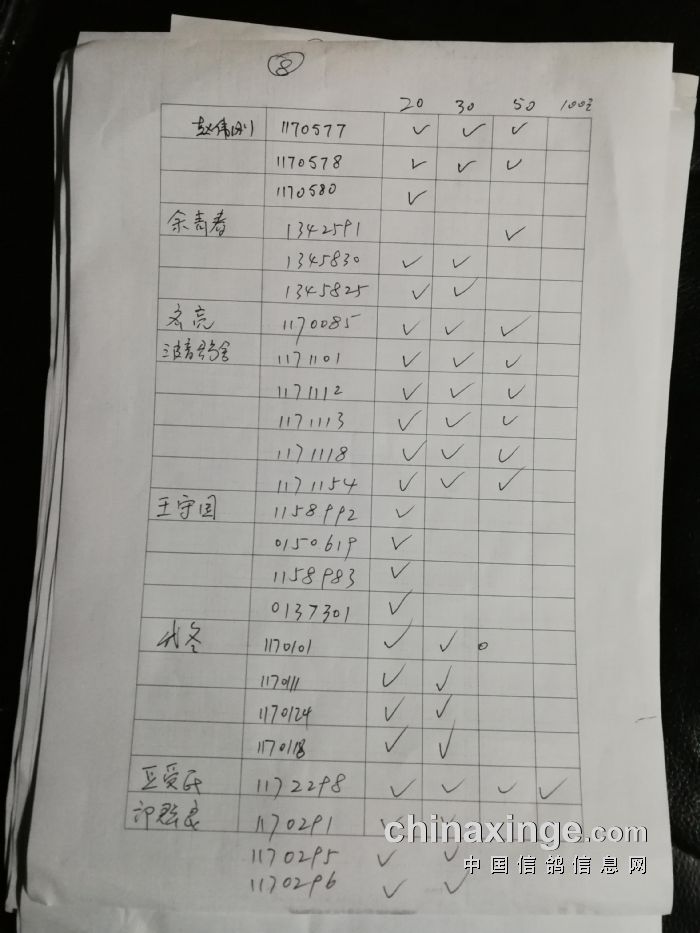 8
20 30 50 100
赵伟刚 1170577 ✓ ✓ ✓
1170578 ✓ ✓ ✓
1170580 ✓
余青春 1342591 ✓
1345830 ✓ ✓
1345825 ✓ ✓
亮 1170085 ✓ ✓ ✓
1171101 ✓ ✓ ✓
1171112 ✓ ✓ ✓
1171113 ✓ ✓ ✓
1171118 ✓ ✓ ✓
1171154 ✓ ✓ ✓
王守国 1158992 ✓
0150619 ✓
1158983 ✓
0137301 ✓
1170101 ✓ ✓ 0
1170111 ✓ ✓
1170124 ✓ ✓
1170118 ✓ ✓
1172298 ✓ ✓ ✓ ✓
1170291 ✓ ✓
chinaxinge.com
1170295 ✓ ✓
中国信鸽信息网
1170296 ✓ ✓